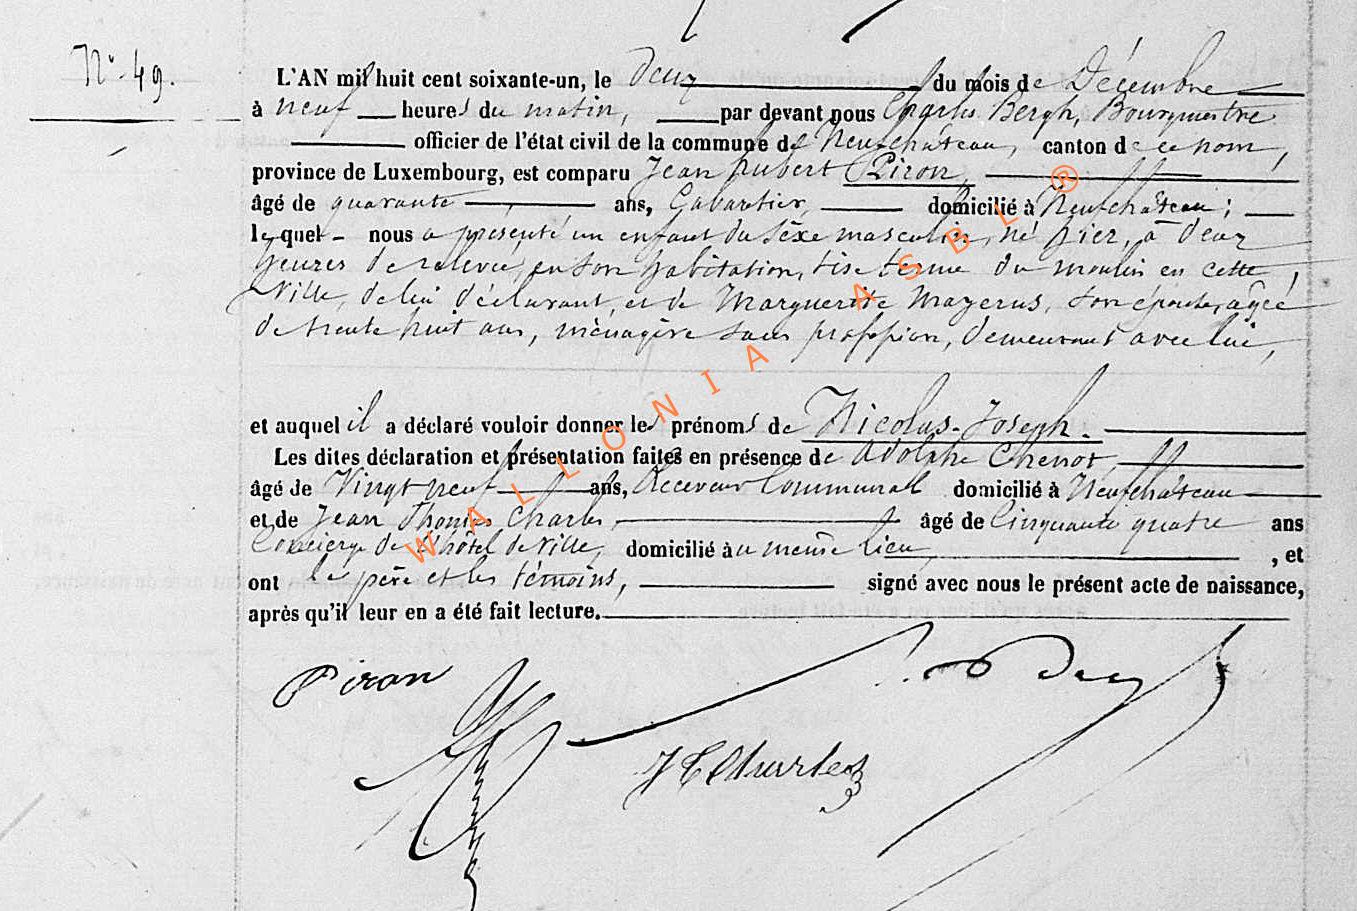 N° 49.
L'AN mil huit cent soixante-un, le Deux du mois de Décembre
à neuf heures du matin, par devant nous Charles Bergh, Bourgmestre
officier de l'état civil de la commune de Neufchâteau, canton de ce nom,
province de Luxembourg, est comparu Jean hubert Piron,
âgé de quarante ans, Cabaretier, domicilié à Neufchâteau;
lequel nous a présenté un enfant du sexe masculin, né hier, à deux
heures de relevée, en son habitation, sise terme du moulin en cette
Ville, de lui déclarant, et de Marguerite Mayerus, son épouse, agée
de trente huit ans, ménagère sans profession, demeurant avec lui,
et auquel il a déclaré vouloir donner les prénoms de Nicolas-Joseph.
Les dites déclaration et présentation faites en présence de Adolphe Chenot,
âgé de Vingt neuf ans, Receveur Communal domicilié à Neufchâteau
et de Jean Thomas Charles, âgé de Cinquante quatre ans
Concierge de l'hôtel de Ville, domicilié au même lieu, , et
ont le père et les témoins, signé avec nous le présent acte de naissance,
après qu'il leur en a été fait lecture.
Piron
J T Charles
WALLONIA ASBL ®